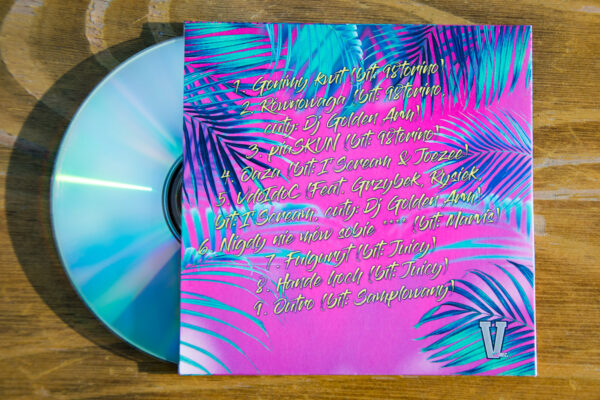 1. Gonimy kwit (bit: 98torino)
2. Równowaga (bit: 98torino,
cuty: Dj Golden Arm)
3. piaSKUN (bit: 98torino)
4. Oaza (bit: I'Scream & Joezee)
5. VdoIdoC (Feat. Grzybek, Rysiek,
bit: I'Scream, cuty: Dj Golden Arm)
6. Nigdy nie mów sobie **** (bit: Marvis)
7. Fulguryt (bit: Juicy)
8. Hande hoch (bit: Juicy)
9. Outro (bit: Samplowany)